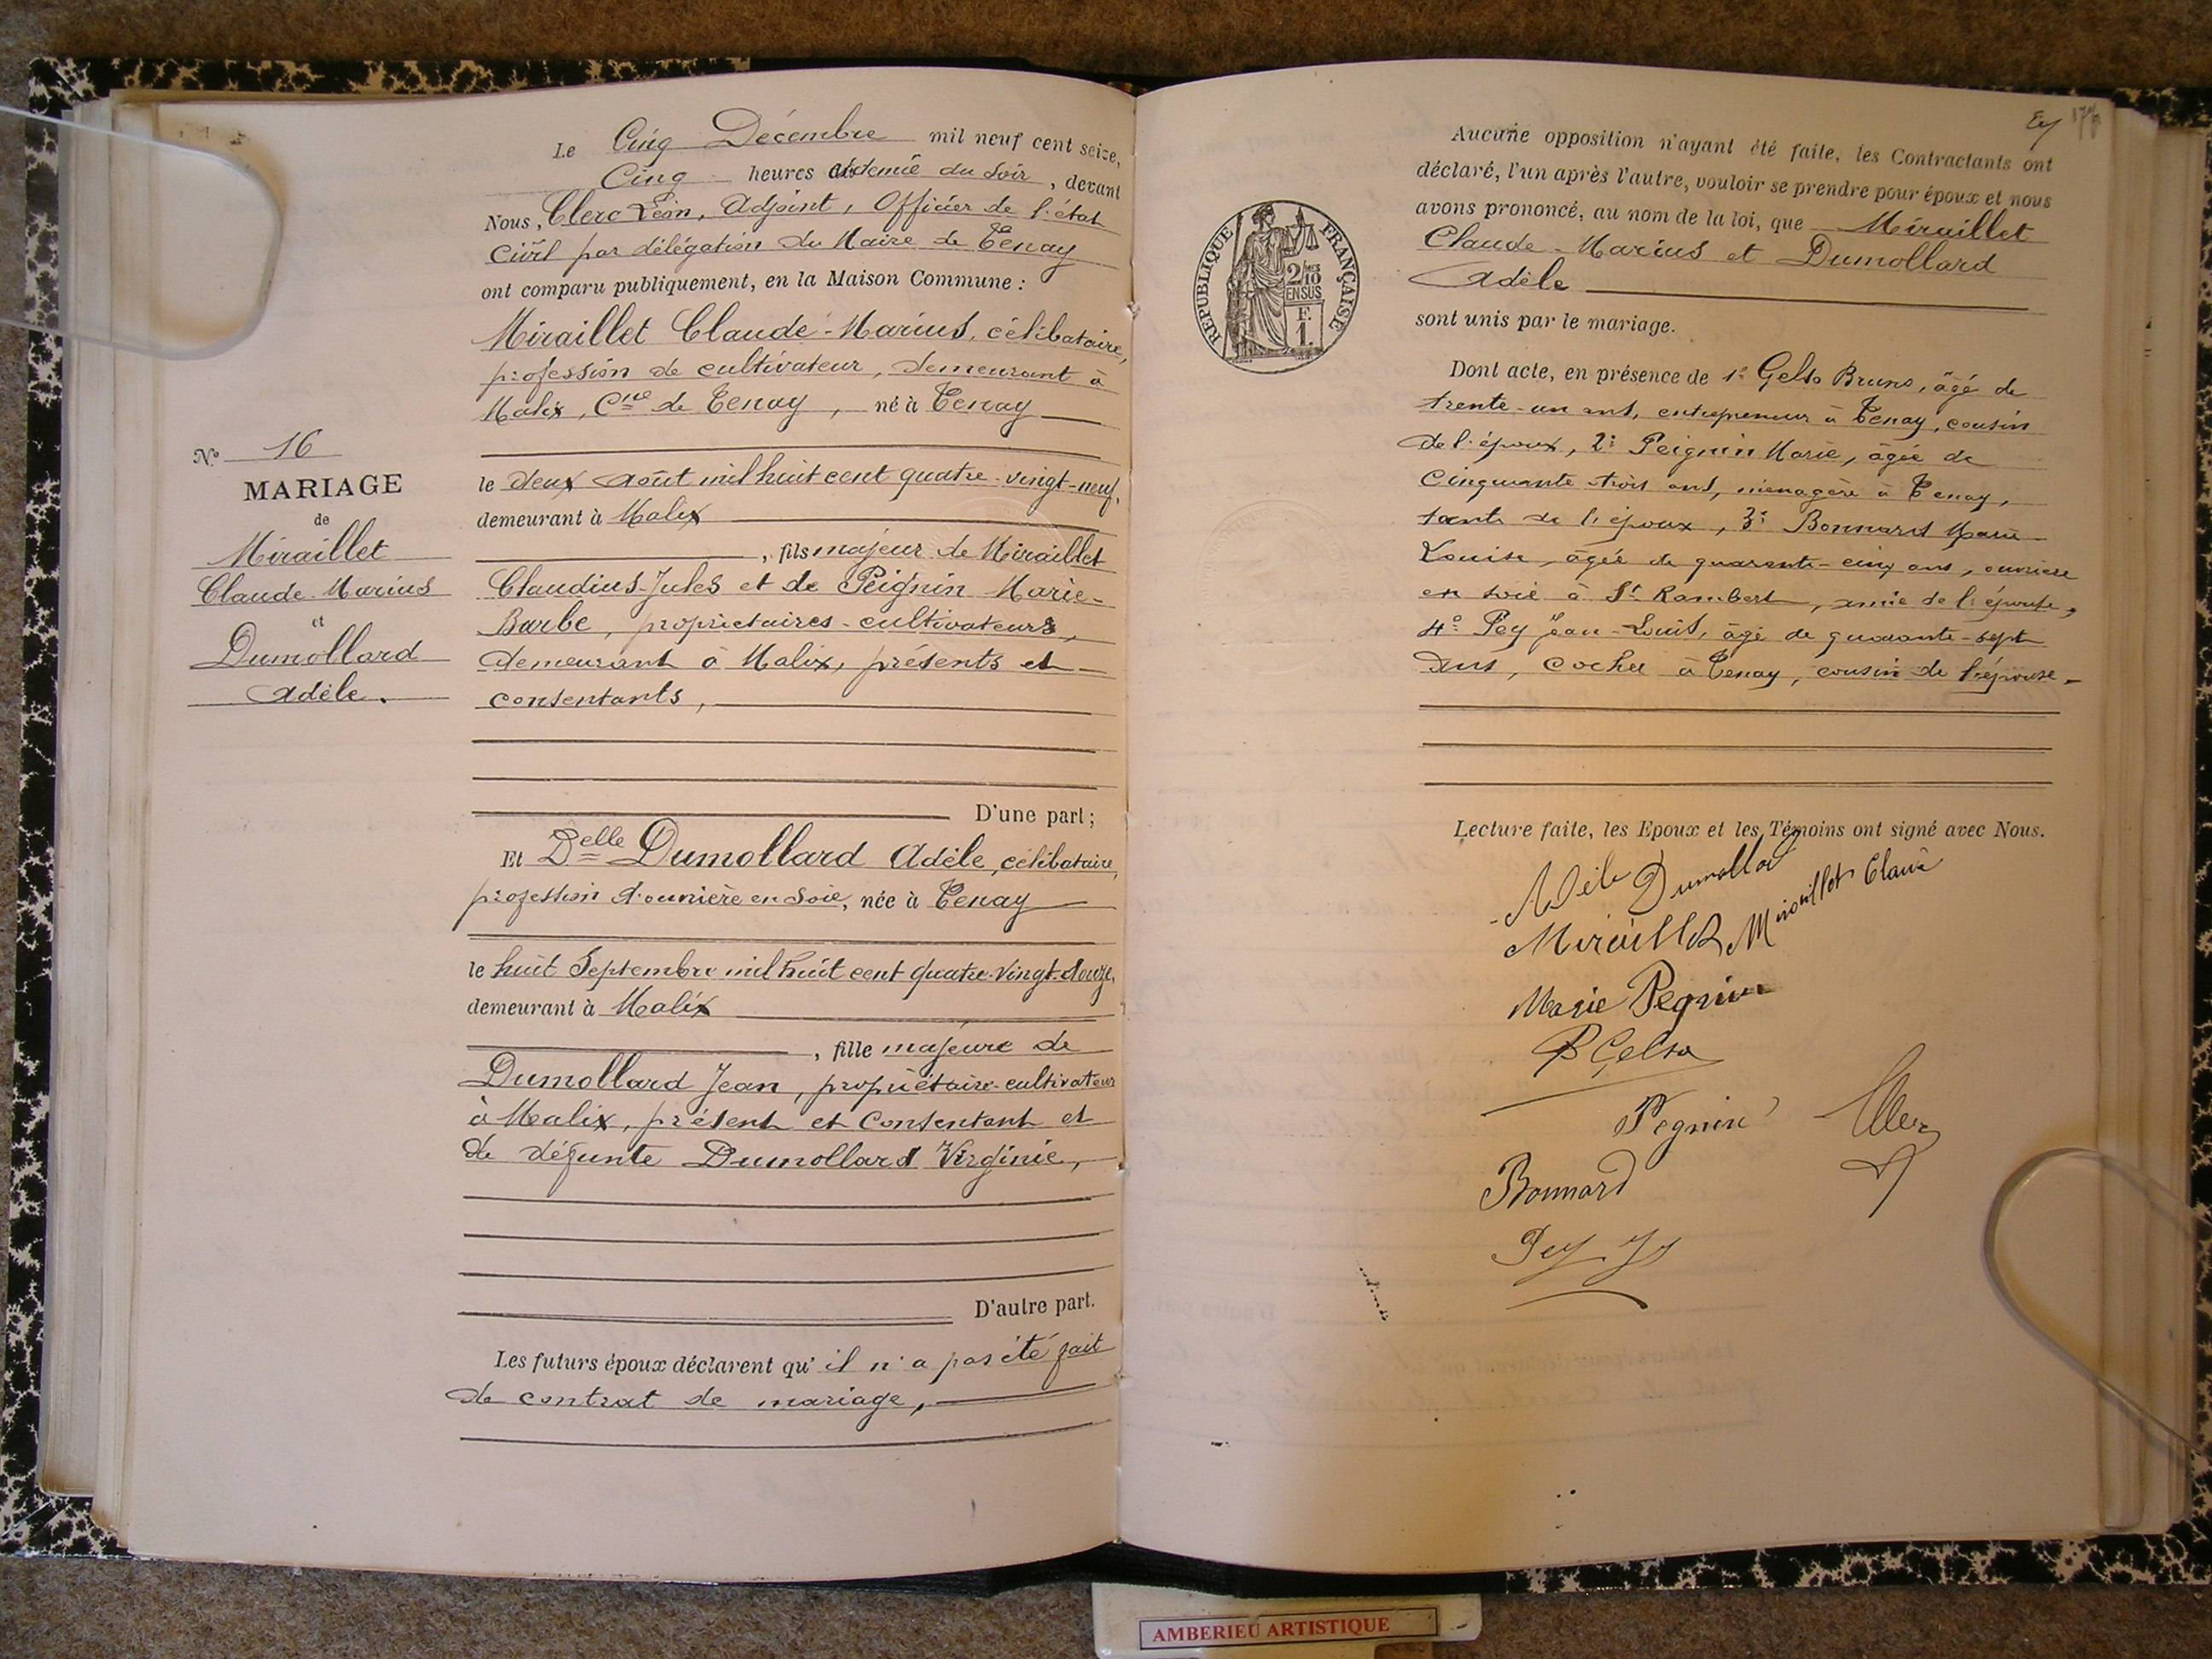 Le Cinq Décembre mil neuf cent seize,
Cinq heures et demie du soir, devant
Nous, Clerc Léon, Adjoint, Officier de l'état
civil par délégation du Maire de Tenay
ont comparu publiquement, en la Maison Commune :
Miraillet Claude-Marius, célibataire,
profession de cultivateur, demeurant à
Malix, Cne de Tenay, né à Tenay
le deux août mil huit cent quatre-vingt-neuf,
demeurant à Malix
, fils majeur de Miraillet
Claudius-Jules et de Peignin Marie-
Barbe, propriétaires-cultivateurs,
demeurant à Malix, présents et
consentants,
D'une part ;
Et Delle Dumollard Adèle, célibataire,
profession d'ouvrière en soie, née à Tenay
le huit Septembre mil huit cent quatre-vingt-douze,
demeurant à Malix
, fille majeure de
Dumollard Jean, propriétaire-cultivateur
à Malix, présent et consentant et
de défunte Dumollard Virginie,
D'autre part.
Les futurs époux déclarent qu'il n'a pas été fait
de contrat de mariage,
No 16
MARIAGE
de
Miraillet
Claude-Marius
et
Dumollard
Adèle.
Aucune opposition n'ayant été faite, les Contractants ont
déclaré, l'un après l'autre, vouloir se prendre pour époux et nous
avons prononcé, au nom de la loi, que Miraillet
Claude-Marius et Dumollard
Adèle
sont unis par le mariage.
RÉPUBLIQUE FRANÇAISE
2/10 MES
EN SUS
F.
1.
Dont acte, en présence de 1° Gelso Bruno, âgé de
trente-un ans, entrepreneur à Tenay, cousin
de l'époux, 2° Peignin Marie, âgée de
cinquante-trois ans, ménagère à Tenay,
tante de l'époux, 3° Bonnard Marie-
Louise, âgée de quarante-cinq ans, ouvrière
en soie à St Rambert, amie de l'épouse,
4° Pey Jean-Louis, âgé de quarante-sept
ans, cocher à Tenay, cousin de l'épouse.
Lecture faite, les Epoux et les Témoins ont signé avec Nous.
Adèle Dumollard
Miraillet Miraillet Claude
Marie Pegnin
B Gelso
Pegnin Clerc
Bonnard
Pey
AMBERIEU ARTISTIQUE